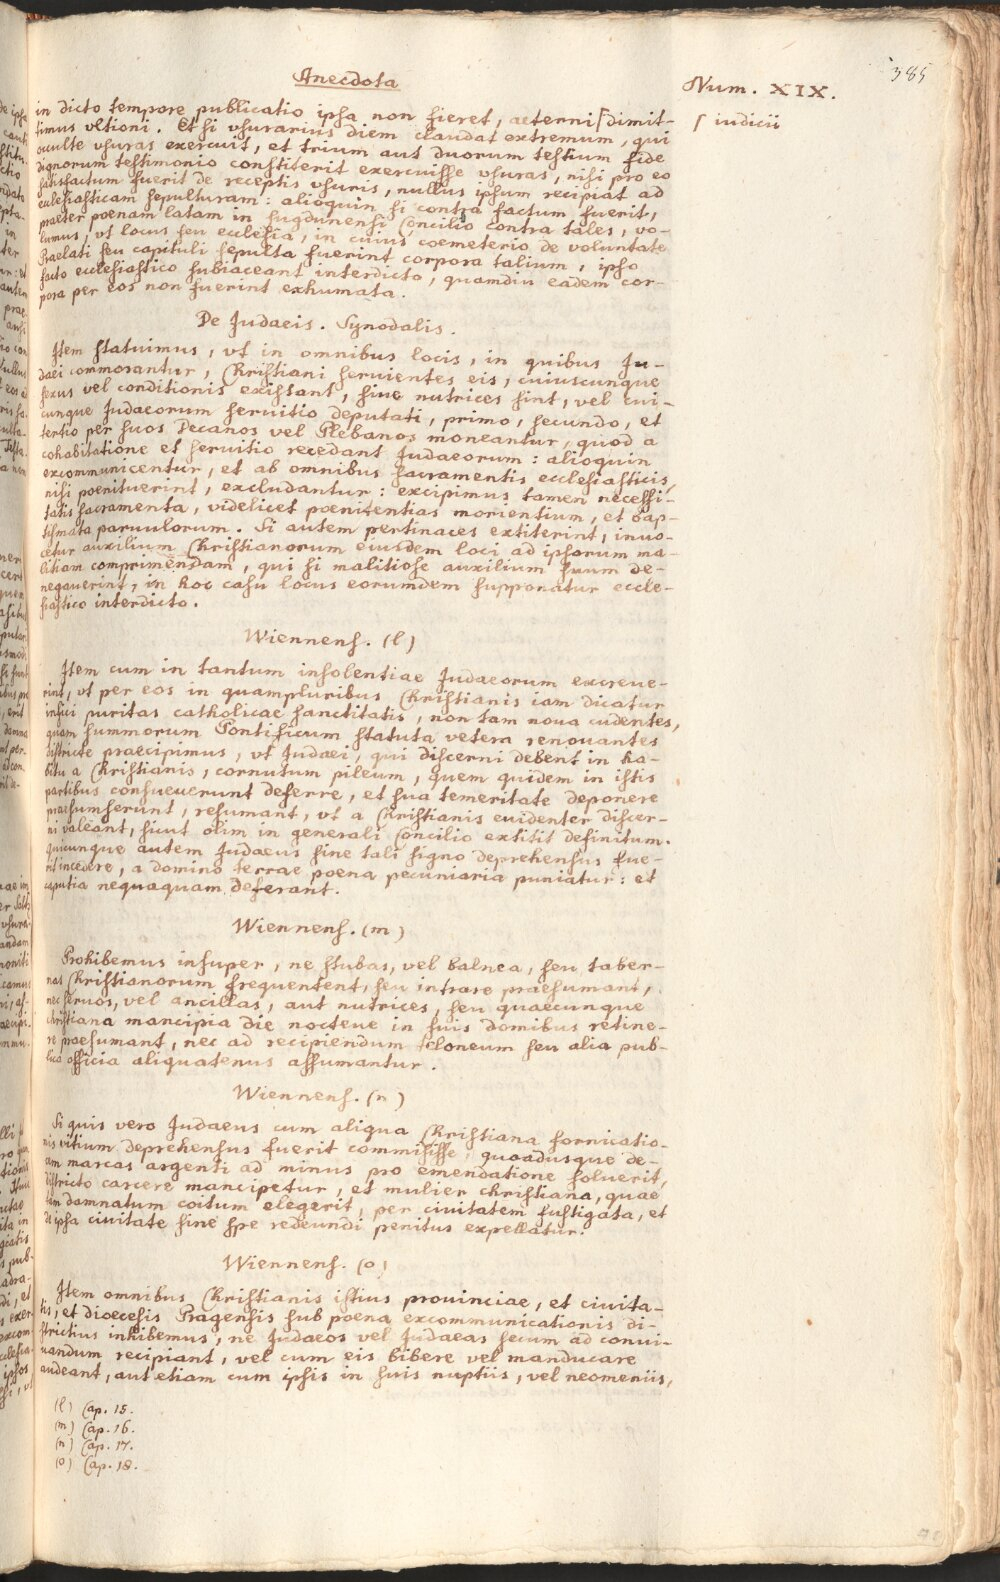 385
Anecdota
Num. XIX.
in dicto tempore publicatio ipsa non fieret, aeterni ⌈ dimit-
⌈ iudicii
timus vltioni. Et si vsurarius diem claudat extremum, qui
occulte vsuras exercuit, et trium aut duorum testium fide
dignorum testimonio constiterit exercuisse vsuras, nisi pro eo
satisfactum fuerit de receptis vsuris, nullus ipsum recipiat ad
ecclesiasticam sepulturam: alioquin si contra factum fuerit,
praeter poenam latam in Lugdunensi Concilio contra tales, vo-
lumus, vt locus seu ecclesia, in cuius coemeterio de voluntate
Praelati seu capituli sepulta fuerint corpora talium, ipso
facto ecclesiastico subiaceant interdicto, quamdiu eadem cor-
pora per eos non fuerint exhumata.
De Judaeis. Synodalis.
Item statuimus, vt in omnibus locis, in quibus Ju-
daei commorantur, Christiani seruientes eis, cuiuscunque
sexus vel conditionis existant, siue nutrices sint, vel cui-
cunque Judaeorum seruitio deputati, primo, secundo, et
tertio per suos Decanos vel Plebanos moneantur, quod a
cohabitatione et seruitio recedant Judaeorum: alioquin
excommunicentur, et ab omnibus sacramentis ecclesiasticis,
nisi poenituerint, excludantur: excipimus tamen necessi-
tatis sacramenta, videlicet poenitentias morientium, et bap-
tismata paruulorum. Si autem pertinaces extiterint, inuo-
cetur auxilium Christianorum eiusdem loci ad ipsorum ma-
litiam comprimendam, qui si malitiose auxilium suum de-
negauerint, in hoc casu locus eorumdem supponatur eccle-
siastico interdicto.
Wiennens. (l)
Item cum in tantum insolentiae Judaeorum excreue-
rint, vt per eos in quampluribus Christianis iam dicatur
infici puritas catholicae sanctitatis, non tam noua cudentes,
quam summorum Pontificum statuta vetera renouantes
districte praecipimus, vt Judaei, qui discerni debent in ha-
bitu a Christianis, cornutum pileum, quem quidem in istis
partibus consueuerunt deferre, et sua temeritate deponere
praesumserunt, resumant, vt a Christianis euidenter discer-
ni valeant, sicut olim in generali Concilio extitit definitum.
quicunque autem Judaeus sine tali signo deprehensus fue-
rit incedere, a domino terrae poena pecuniaria puniatur: et
caputia nequaquam deferant.
Wiennens. (m)
Prohibemus insuper, ne stubas, vel balnea, seu taber-
nas Christianorum frequentent, seu intrare praesumant,
nec seruos, vel ancillas, aut nutrices, seu quaecunque
christiana mancipia die nocteue in suis domibus retine-
re praesumant, nec ad recipiendum teloneum seu alia pub-
lica officia aliquatenus assumantur.
Wiennens. (n)
Si quis vero Judaeus cum aliqua Christiana fornicatio-
nis vitium deprehensus fuerit commisisse, quoadusque de-
cem marcas argenti ad minus pro emendatione soluerit,
districto carcere mancipetur, et mulier christiana, quae
tam damnatum coitum elegerit, per ciuitatem fustigata, et
de ipsa ciuitate sine spe redeundi penitus expellatur.
Wiennens. (o)
Item omnibus Christianis istius prouinciae, et ciuita-
tis, et dioecesis Pragensis sub poena excommunicationis di-
strictius inhibemus, ne Judaeos vel Judaeas secum ad conui-
uandum recipiant, vel cum eis bibere vel manducare
audeant, aut etiam cum ipsis in suis nuptiis, vel neomeniis,
(l) Cap. 15.
(m) Cap. 16.
(n) Cap. 17.
(o) Cap. 18.